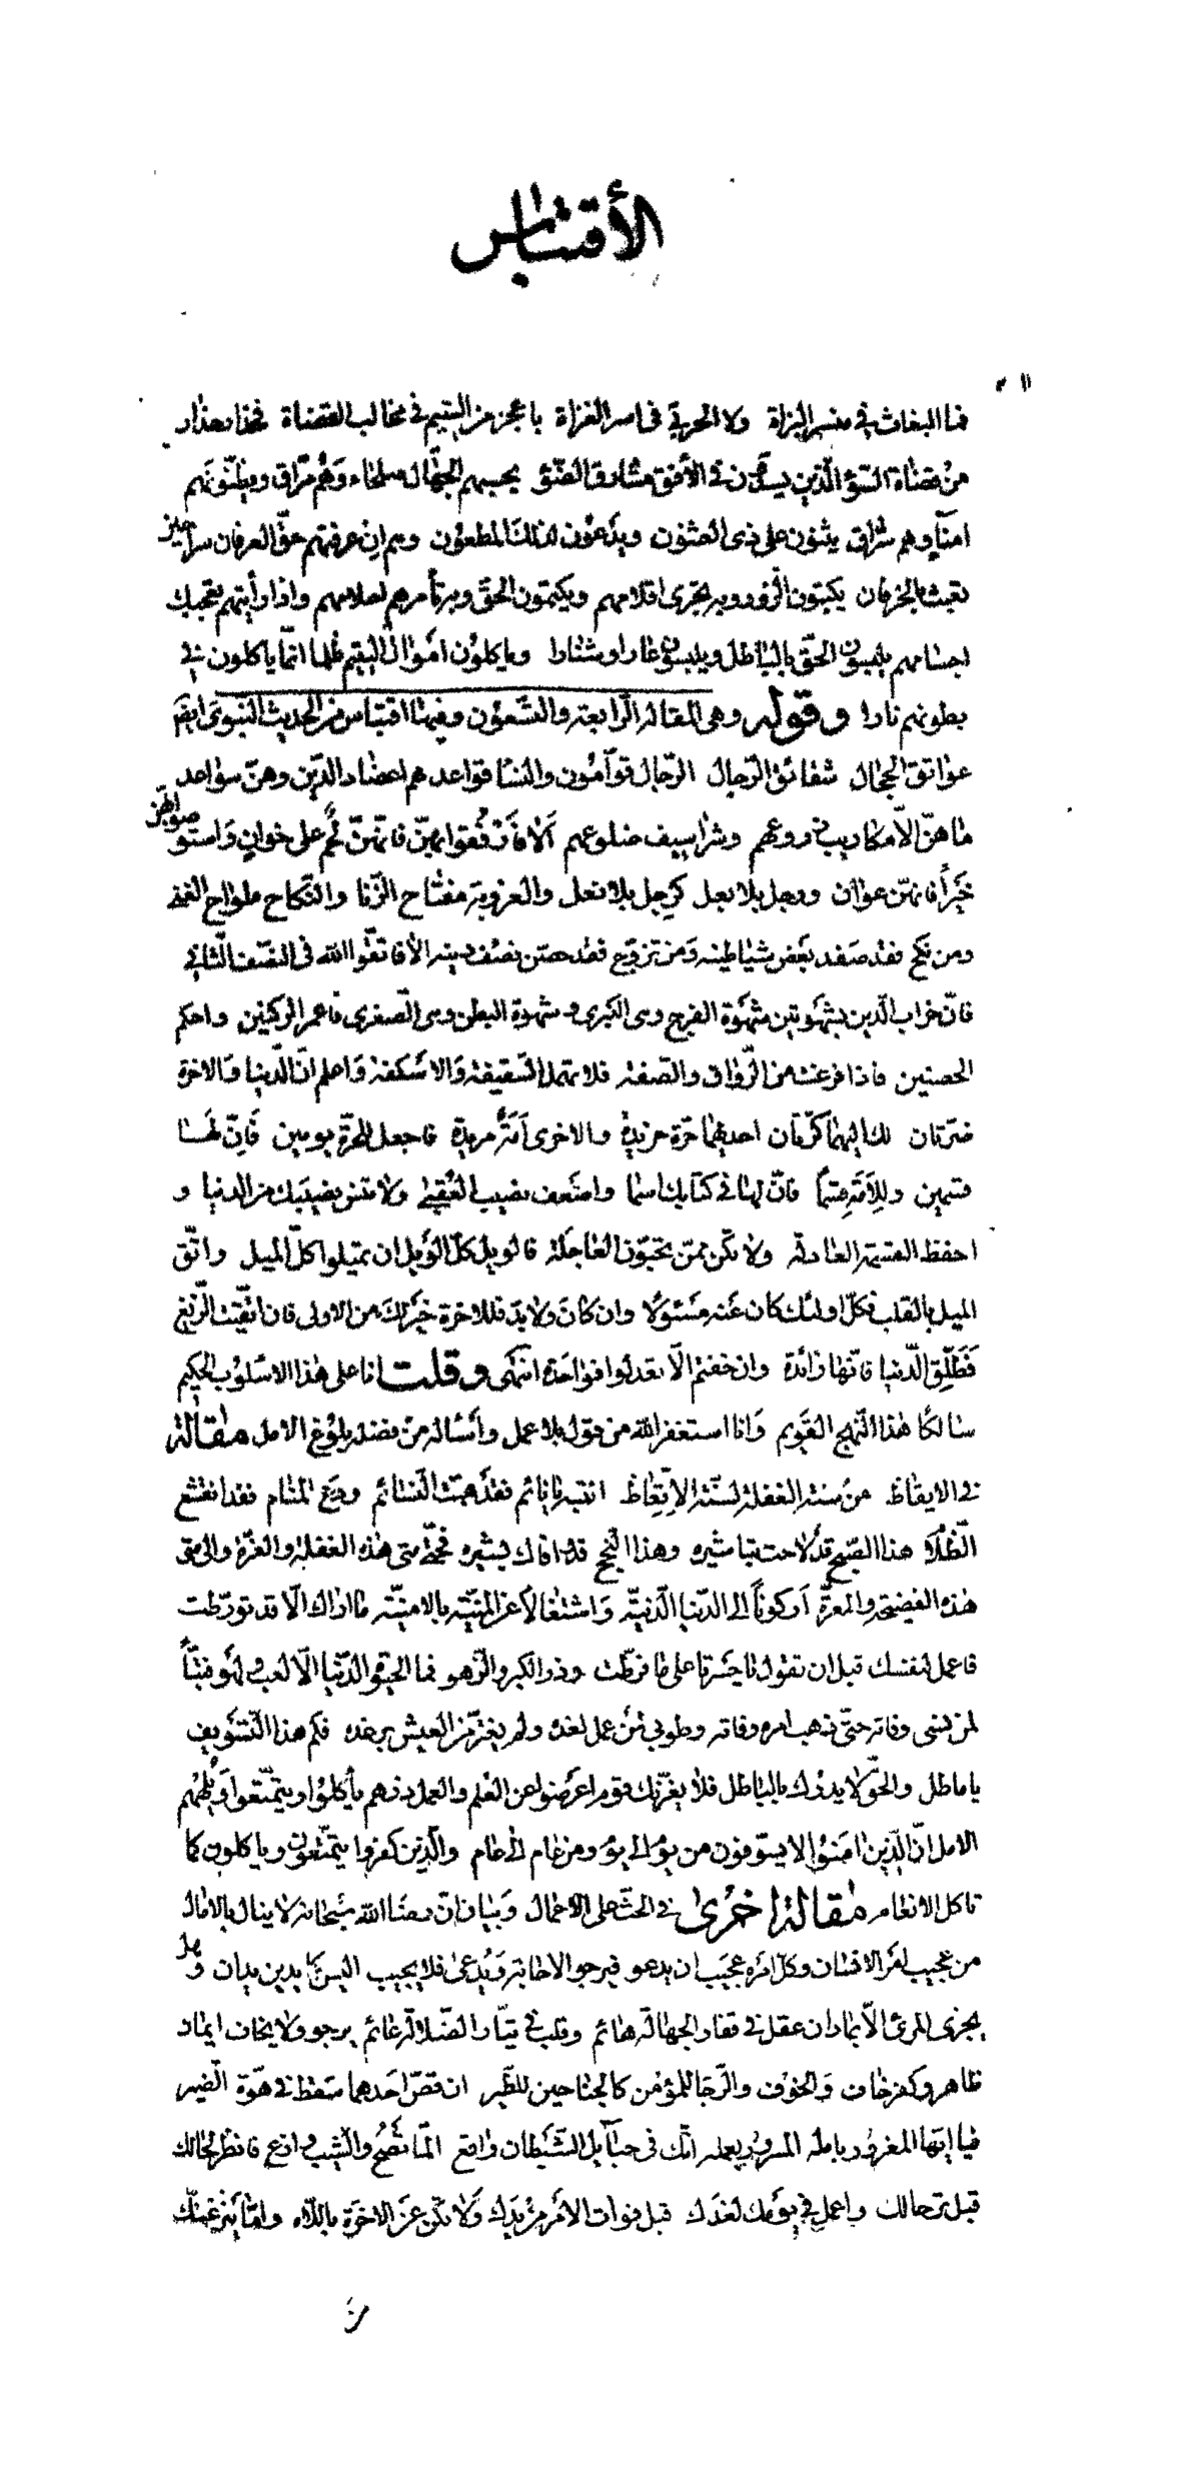 الأقتباس
١١ ٢
فما البغاث في منسر البزاة ولا الحربي في اسر الغزاة باعجز من اليتيم في مخالب القضاة فحذار حذار
من قضاة السوء الذين يسفهون في الأفق مشارق الضوء يحسبهم الجهال صلحاء وهم مراق ويظنونهم
امناء وهم سراق يثنون على ذي العثنون ويدعون لذلك المطعون وهم ان عرفتهم حق العرفان سراحين
نعيث بالخرفان يكتبون الزور وبه يجرى اقلامهم ويكتمون الحق وبه تأمرهم احلامهم واذا رأيتهم تعجبك
اجسامهم يلبسون الحق بالباطل ويلبسون عارا وشنارا وياكلون اموال اليتيم ظلما انما ياكلون في
بطونهم نارا وقوله وهي المقالة الرابعة والتسعون وفيها اقتباس من الحديث النبوي ايضم
عواتق الحجال شقائق الرجال الرجال قوامون والنساء قواعد هم اعضاد الدين وهن سواعد
ما هن الا مكاديب في روعهم وشراسيف ضلوعهم ألا فارفقوا بهن فانهن لحم على خوان واستوصوا بهن
خيرا فانهن عوان ورجل بلا بعل كرجل بلا نعل والعزوبة مفتاح الزنا والنكاح ملواح الغنى
ومن نكح فقد صفد بعض شياطينه ومن تزوج فقد حصن نصف دينه الا فاتقوا الله في النصف الثاني
فان خراب الدين بشهوتين شهوة الفرج وهي الكبرى وشهوة البطن وهي الصغرى فاعمر الركنين واحكم
الحصنين فاذا فرغت من الرواق والصفة فلا تهمل السقيفة والاسكفة واعلم ان الدنيا والاخرة
ضرتان لك اليهما كرتان احديهما حرة مزيدة والاخرى أمة مريدة فاجعل للحرة يومين فان لها
قسمين وللأمة قسما فان لها في كتابك اسما واضعف نصيب العقبى ولا تنس نصيبك من الدنيا و
احفظ القسمة العادلة ولا تكن ممن يحبون العاجلة فالويل كل الويل ان تميلوا كل الميل واتق
الميل بالقلب فكل اولئك كان عنه مسئولا وان كان ولا بد فللاخرة خير لك من الاولى فان اتقيت الزيغ
فطلق الدنيا فانها زائدة وان خفتم الا تعدلوا فواحدة انتهى وقلت انا على هذا الاسلوب الحكيم
سالكا هذا النهج القويم وانا استغفر الله من قول بلا عمل واسئاله من فضله بلوغ الامل مقالة
في الايقاظ من سنة الغفلة لسنة الاتعاظ انتبه يا نائم فقد هبت النسائم ودع المنام فقد انقشع
الظلام هذا الصبح قد لاحت تباشيره وهذا النجح قد وافاك بشيره فحتى متى هذه الغفلة والغرة والى متى
هذه الفضيحة والمعرة أركونا الى الدنيا الدنية واشتغالا عن المنية بالامنية ما اراك الا قد تورطت
فاعمل لنفسك قبل ان تقول يا حسرتا على ما فرطت وذر الكبر والزهو فما الحيوة الدنيا الا لعب ولهو فتبا
لمن نسى وفاته حتى ذهب امره وفاته وطوبى لمن عمل لغده ولم يغتر من العيش برغده فكم هذا التسويف
يا ماطل والحق لا يدرك بالباطل فلا يغرنك قوم اعرضوا عن العلم والعمل ذرهم يأكلوا ويتمتعوا ويلههم
الامل ان الذين امنوا لا يسوفون من يوم الى يوم ومن عام الى عام والذين كفروا يتمتعون وياكلون كما
تاكل الانعام مقالة اخرى في الحث على الاعمال وبيان ان رضا الله سبحانه لا ينال بالامال
من عجيب امر الانسان وكل امره عجيب ان يدعو فيرجو الاجابة ويدعى فلا يجيب اليس كما يدين يدان وهل
يجزى المرئ الا بما دان عقل في قفار الجهالة هائم وقلب في تيار الضلالة عائم يرجو ولا يخاف ايمان
ظاهر وكفر خاف والخوف والرجا للمؤمن كالجناحين للطير ان قص احدهما سقط في هوة الضير
فيا ايها المغرور بامله المسرور بعمله انك في حبايل الشيطان واقع اما تصح والشيب وازع فانظر لحالك
قبل ترحالك واعمل في يومك لغدك قبل فوات الامر من يدك ولا تكن عن الاخرة باللاه واما ينزغنك
من